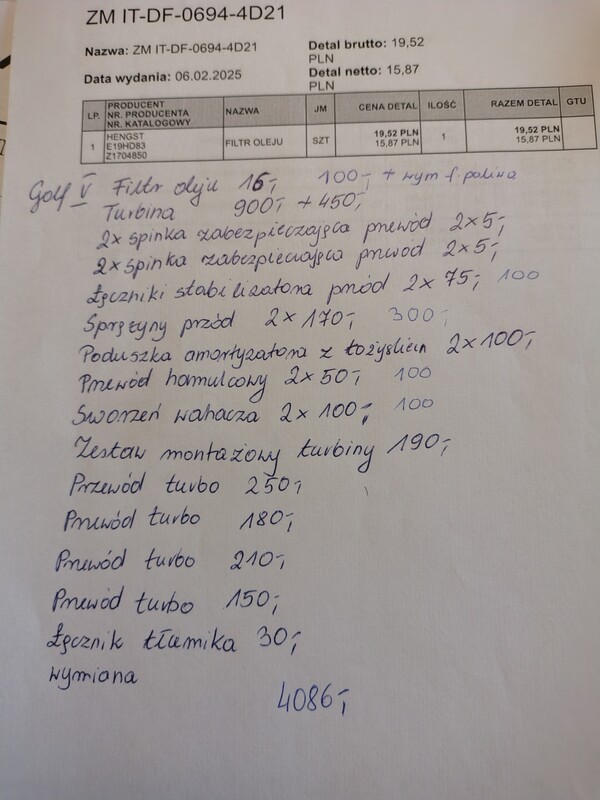 ZM IT-DF-0694-4D21
Nazwa: ZM IT-DF-0694-4D21
Detal brutto: 19,52
PLN
Data wydania: 06.02.2025
Detal netto: 15,87
PLN
LP. PRODUCENT NR. PRODUCENTA NR. KATALOGOWY NAZWA JM CENA DETAL ILOŚĆ RAZEM DETAL GTU
1 HENGST E19HD83 Z1704850 FILTR OLEJU SZT 19,52 PLN 15,87 PLN 1 19,52 PLN 15,87 PLN
Golf V Filtr oleju 16,- 100,- + wym f. paliwa
Turbina 900,- + 450,-
2x spinka zabezpieczająca przewód 2x5,-
2x spinka zabezpieczająca przewód 2x5,-
Łączniki stabilizatora przód 2x75,- 100
Sprężyny przód 2x170,- 300,-
Poduszka amortyzatora z łożyskiem 2x100,-
Przewód hamulcowy 2x50,- 100
Sworzeń wahacza 2x100,- 100
Zestaw montażowy turbiny 190,-
Przewód turbo 250,-
Przewód turbo 180,-
Przewód turbo 210,-
Przewód turbo 150,-
Łącznik tłumika 30,-
wymiana
4086,-